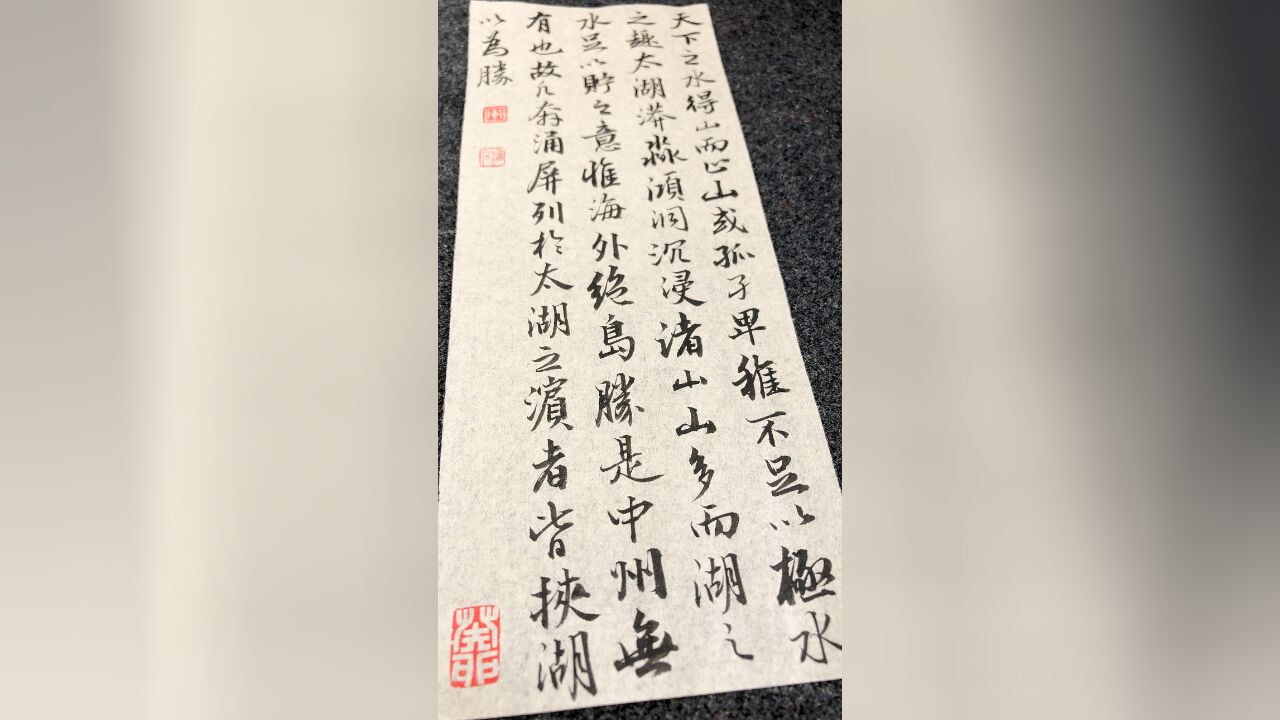 天下之水得山而止山或孤孑卑稚不足以極水
之趣太湖漭淼澒洞沉浸諸山山多而湖之
水足以貯之意惟海外絶島勝是中州無
有也故凡奔涌屏列於太湖之濱者皆挾湖
以為勝